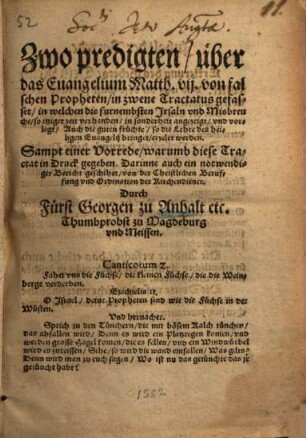 52
Soc^t Jesu Augtæ
11.
Zwo predigten/ über
das Euangelium Matth. vij. von fal
schen Propheten/ in zwene Tractatus gefas-
set/ in welchen die fürnembsten Irsaln vnd Misbreu
che/ so itziger zeit verhanden/ in sonderheit angezeigt/ vnd vorz
legt/ Auch die guten früchte/ so die Lehre des hei-
ligen Euangelij bringet/ erzelet werden.
Sampt einer Vorrede/ warumb diese Tra-
ctat in Druck gegeben. Darinne auch ein notwendi-
ger Bericht geschihet/ von der Christlichen Beruf-
fung vnd Ordination der Kirchendiener.
Durch
Fürst Georgen zu Anhalt etc.
Thumbprobst zu Magdeburg
vnd Meissen.
Canticorum 2.
Fahet vns die Füchse/ die kleinen Füchse/ die die Wein-
berge verderben.
Ezechielis 13.
O Israel/ deine Propheten sind wie die Füchse in der
Wüsten.
Vnd hernacher.
Sprich zu den Tünchern/ die mit bösem Kalch tünchen/
das abfallen wird/ Denn es wird ein Platzregen komen/ vnd
werden grosse Hagel komen/ die es fellen/ vnd ein Windwürbel
wird es zureissen/ Sihe/ so wird die wand einfallen/ Was gilts/
Denn wird man zu euch sagen/ Wo ist nu das getünchte das jr
getüncht habt?
1552